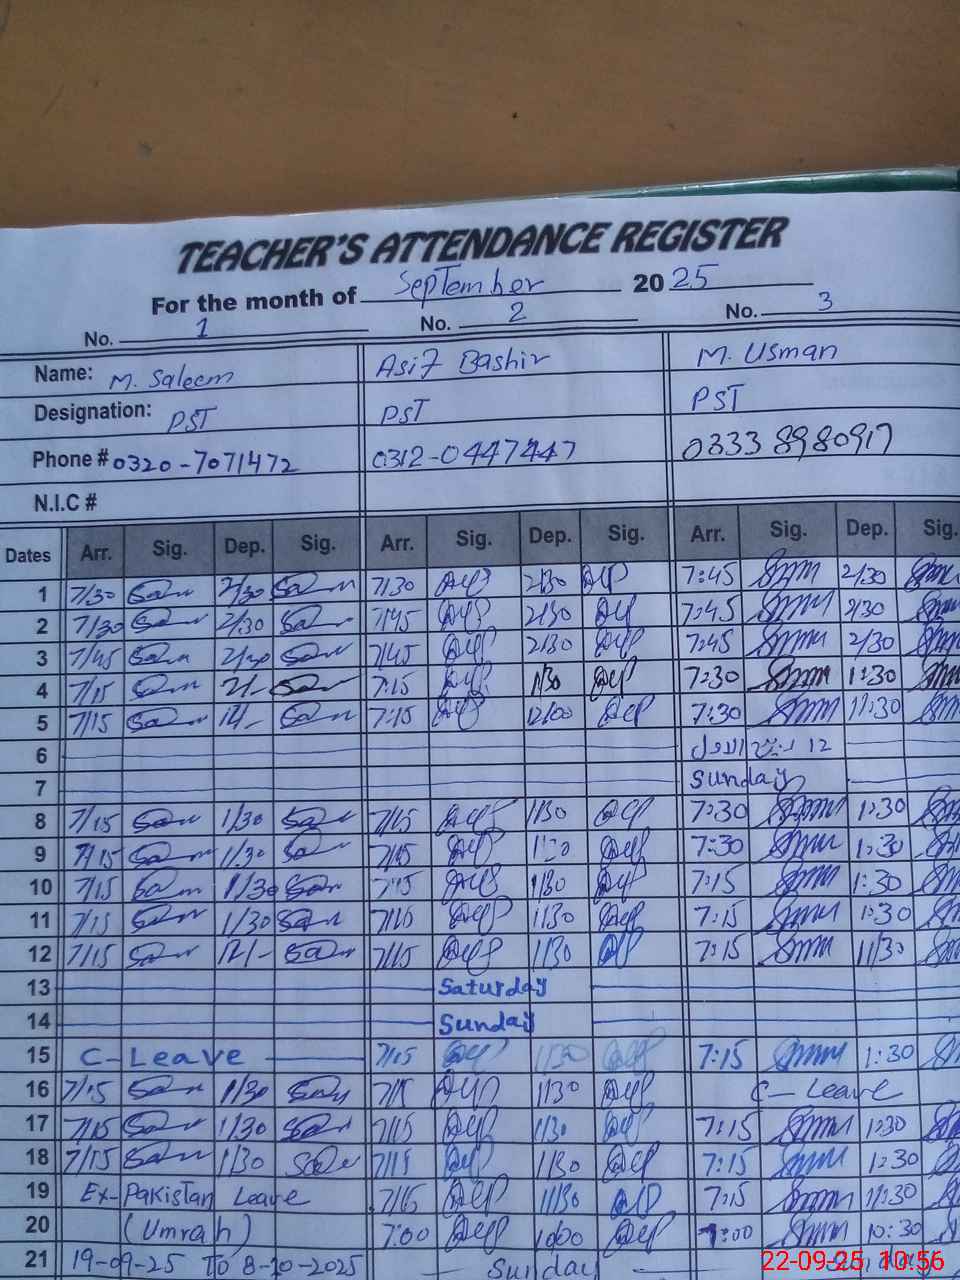 TEACHER'S ATTENDANCE REGISTER
For the month of September 2025
No. 1 No. 2 No. 3
Name: M. Saleem Asif Bashir M. Usman
Designation: PST PST PST
Phone # 0320-7071472 0312-0447447 0333 8980917
N.I.C #
Dates Arr. Sig. Dep. Sig. Arr. Sig. Dep. Sig. Arr. Sig. Dep. Sig.
1 7/30 2/30 7/30 2/30 7:45 2/30
2 7/30 2/30 7/45 2/30 7:45 2/30
3 7/45 7/45 2/30 7:45 2/30
4 7/15 2/- 7:15 1/30 7:30 1:30
5 7/15 12/- 7:15 12/00 7:30 11:30
6 12 ربیع الاول
7 Sunday
8 7/15 1/30 7/15 1/30 7:30 1:30
9 7/15 1/30 7/15 1:30 7:30 1:30
10 7/15 1/30 7:15 1/30 7:15 1:30
11 7/15 1/30 7/15 1/30 7:15 1:30
12 7/15 12/- 7/15 11/30 7:15 11/30
13 Saturday
14 Sunday
15 C-Leave 7/15 1/30 7:15 1:30
16 7/15 1/30 7/15 1/30 C-Leave
17 7/15 1/30 7/15 1/30 7:15 1:30
18 7/15 1/30 7/15 1/30 7:15 1:30
19 Ex-Pakistan Leave 7/15 11/30 7:15 11:30
20 (Umrah) 7:00 7:00 10:30
21 19-09-25 To 8-10-2025 Sunday
22-09-25 10:56